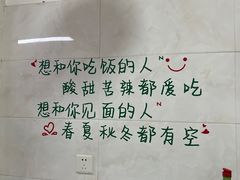 想和你吃饭的人
酸甜苦辣都爱吃
想和你见面的人
春夏秋冬都有空